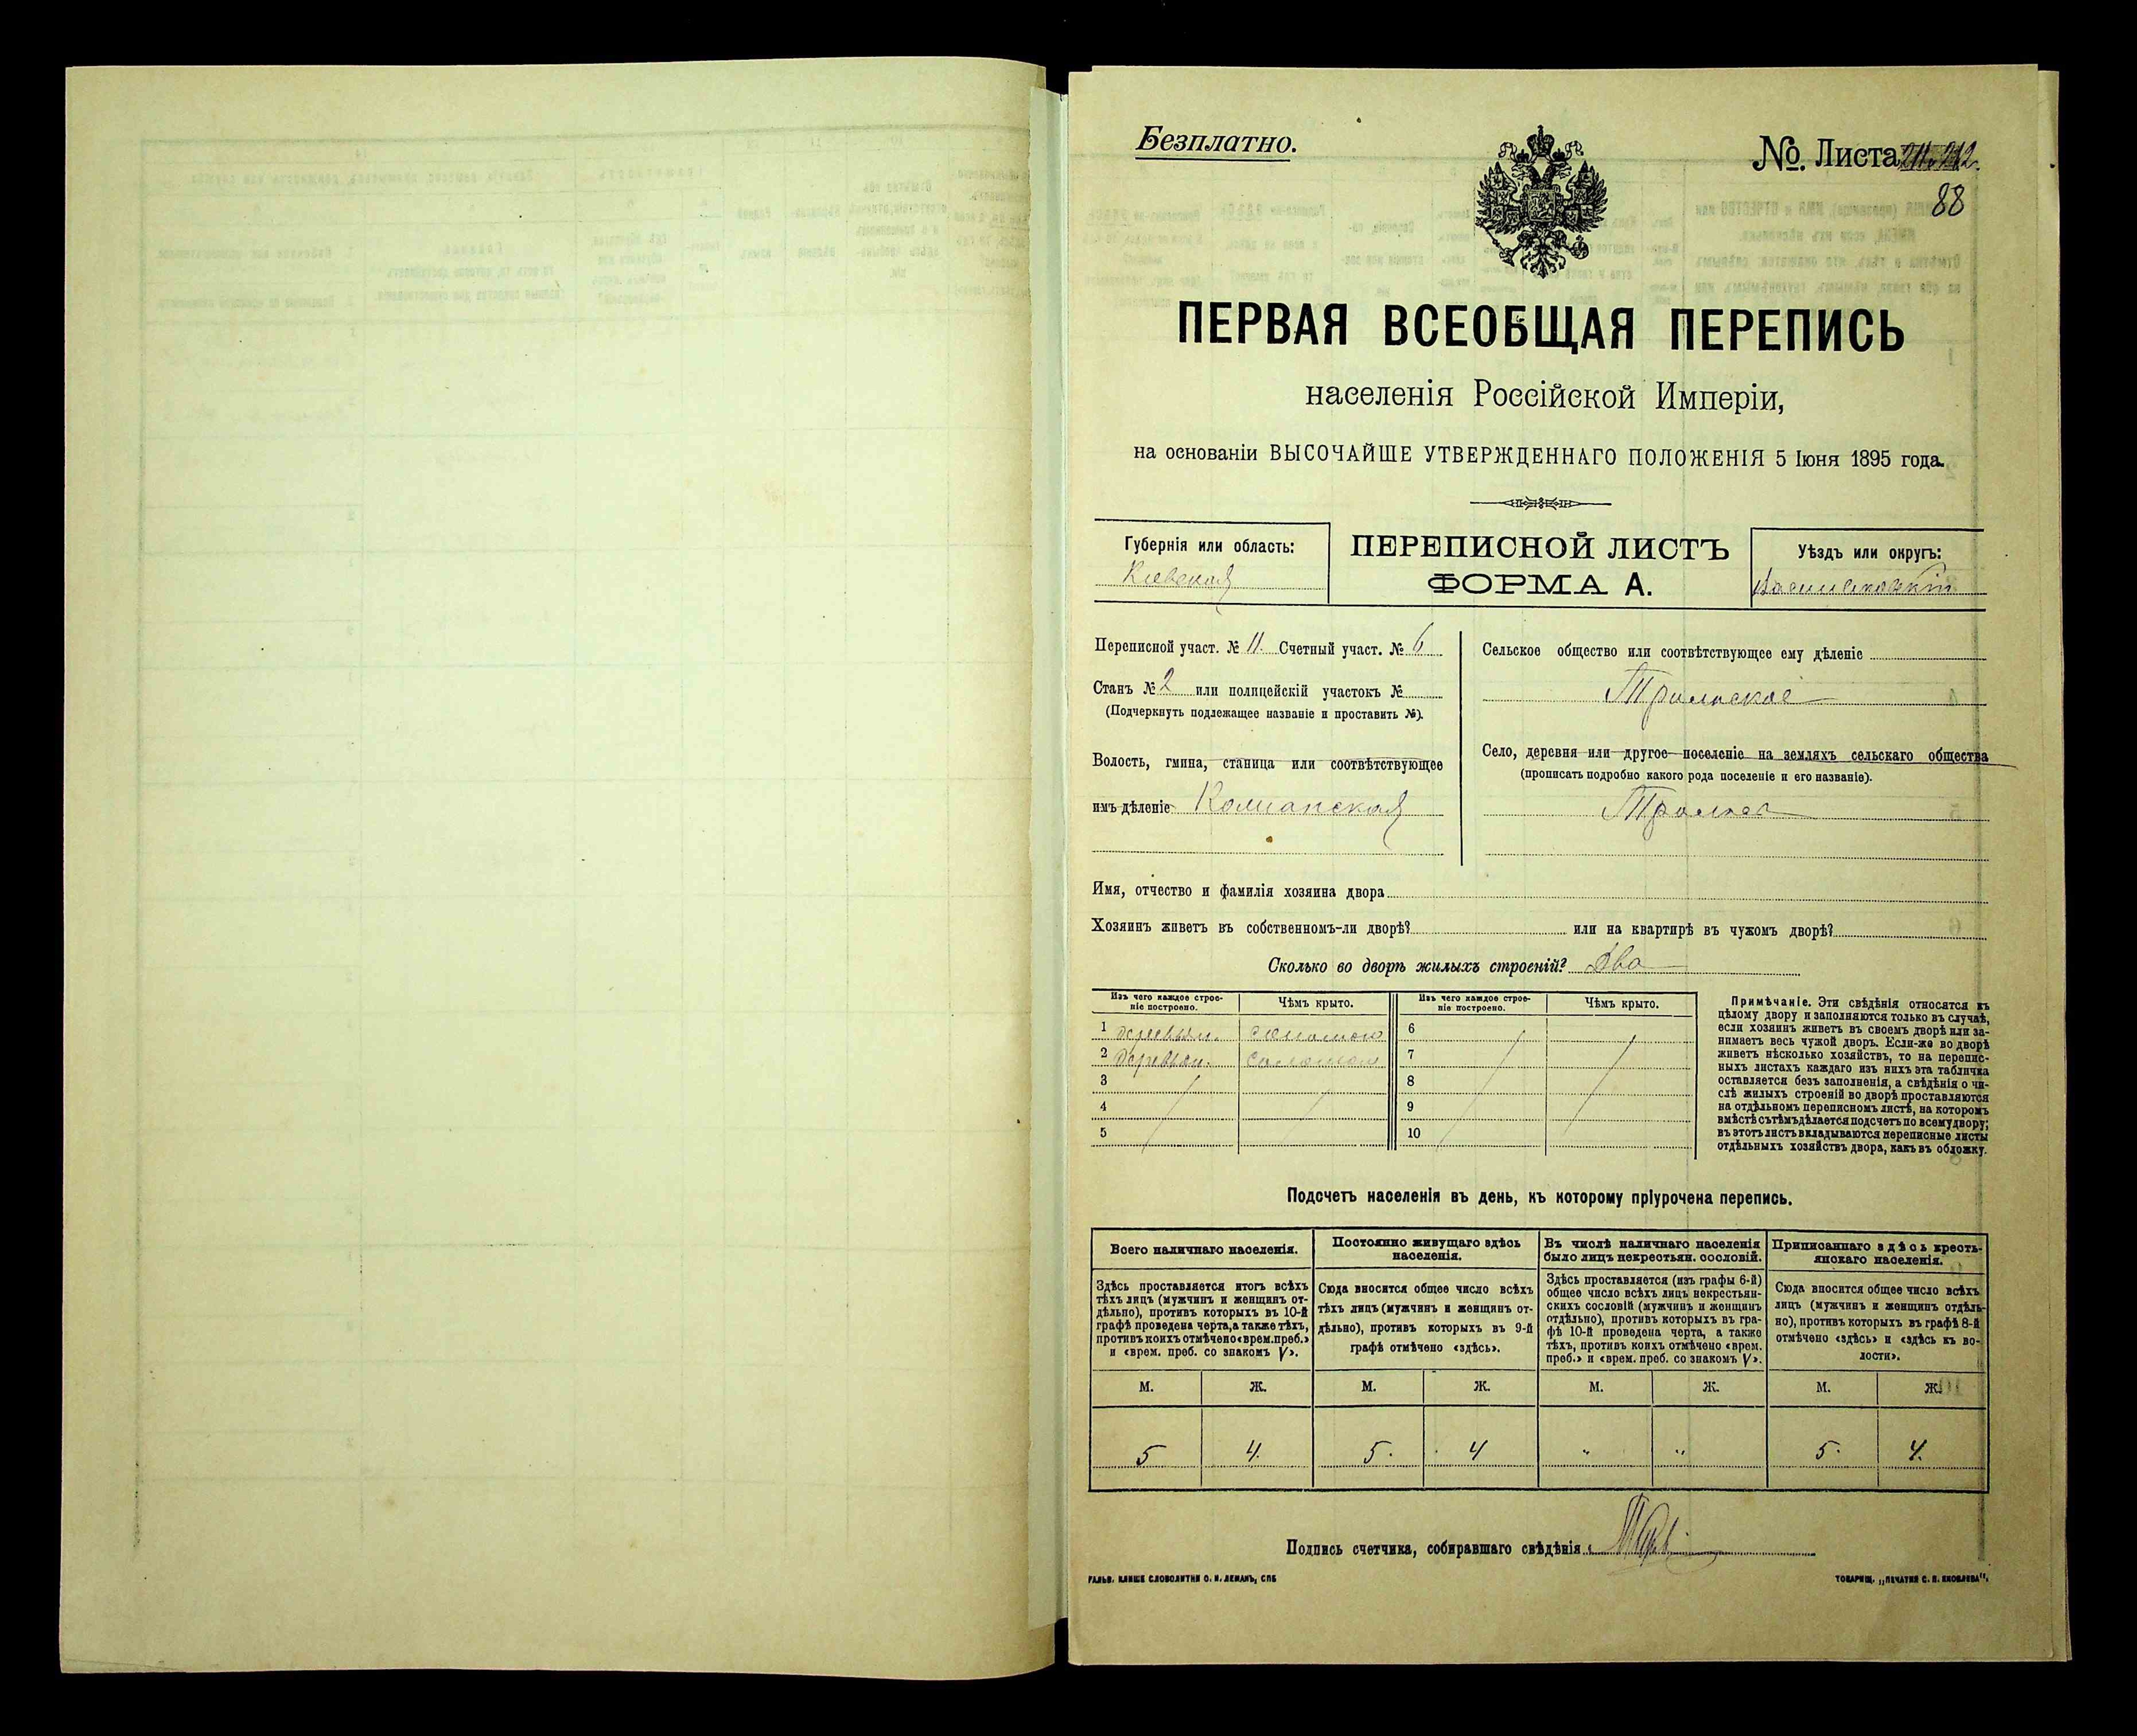 Безплатно.
№. Листа
88
ПЕРВАЯ ВСЕОБЩАЯ ПЕРЕПИСЬ
населенія Россійской Имперіи,
на основаніи ВЫСОЧАЙШЕ УТВЕРЖДЕННАГО ПОЛОЖЕНІЯ 5 Іюня 1895 года.
Губернія или область:
Кіевская
ПЕРЕПИСНОЙ ЛИСТЪ
ФОРМА А.
Уѣздъ или округъ:
Васильковскій
Переписной участ. № 11. Счетный участ. № 6
Станъ № 2 или полицейскій участокъ №
(Подчеркнуть подлежащее названіе и проставить №).
Волость, гмина, станица или соотвѣтствующее
имъ дѣленіе
Сельское общество или соотвѣтствующее ему дѣленіе
Трилѣское
Село, деревня или другое поселеніе на земляхъ сельскаго общества
(прописать подробно какого рода поселеніе и его названіе).
Имя, отчество и фамилія хозяина двора
Хозяинъ живетъ въ собственномъ-ли дворѣ? или на квартирѣ въ чужомъ дворѣ?
Сколько во дворѣ жилыхъ строеній? Два
Изъ чего каждое строе-
ніе построено.
Чѣмъ крыто.
Изъ чего каждое строе-
ніе построено.
Чѣмъ крыто.
1 деревян. соломою 6
2 деревян. соломою 7
3 8
4 9
5 10
Примѣчаніе. Эти свѣдѣнія относятся къ
цѣлому двору и заполняются только въ случаѣ,
если хозяинъ живетъ въ своемъ дворѣ или за-
нимаетъ весь чужой дворъ. Если-же во дворѣ
живетъ нѣсколько хозяйствъ, то на перепис-
ныхъ листахъ каждаго изъ нихъ эта табличка
оставляется безъ заполненія, а свѣдѣнія о чи-
слѣ жилыхъ строеній во дворѣ проставляются
на отдѣльномъ переписномъ листѣ, на которомъ
вмѣстѣ съ тѣмъ дѣлается подсчетъ по всему двору;
въ этотъ листъ вкладываются переписные листы
отдѣльныхъ хозяйствъ двора, какъ въ обложку.
Подсчетъ населенія въ день, къ которому пріурочена перепись.
Всего наличнаго населенія.
Здѣсь проставляется итогъ всѣхъ
тѣхъ лицъ (мужчинъ и женщинъ от-
дѣльно), противъ которыхъ въ 10-й
графѣ проведена черта, а также тѣхъ,
противъ коихъ отмѣчено «врем. преб.»
и «врем. преб. со знакомъ V».
Постоянно живущаго здѣсь
населенія.
Сюда вносится общее число всѣхъ
тѣхъ лицъ (мужчинъ и женщинъ от-
дѣльно), противъ которыхъ въ 9-й
графѣ отмѣчено «здѣсь».
Въ числѣ наличнаго населенія
было лицъ некрестьян. сословій.
Здѣсь проставляется (изъ графы 6-й)
общее число всѣхъ лицъ некрестьян-
скихъ сословій (мужчинъ и женщинъ
отдѣльно), противъ которыхъ въ гра-
фѣ 10-й проведена черта, а также
тѣхъ, противъ коихъ отмѣчено «врем.
преб.» и «врем. преб. со знакомъ V».
Приписаннаго здѣсь кресть-
янскаго населенія.
Сюда вносится общее число всѣхъ
лицъ (мужчинъ и женщинъ отдѣль-
но), противъ которыхъ въ графѣ 8-й
отмѣчено «здѣсь» и «здѣсь къ во-
лости».
М. Ж. М. Ж. М. Ж. М. Ж.
5 4. 5. 4 " " 5. 4.
Подпись счетчика, собиравшаго свѣдѣнія
ГАЛЬВ. КЛИШЕ СЛОВОЛИТНИ О. И. ЛЕМАНЪ, СПБ
ТОВАРИЩ. „ПЕЧАТНЯ С. П. ЯКОВЛЕВА“.